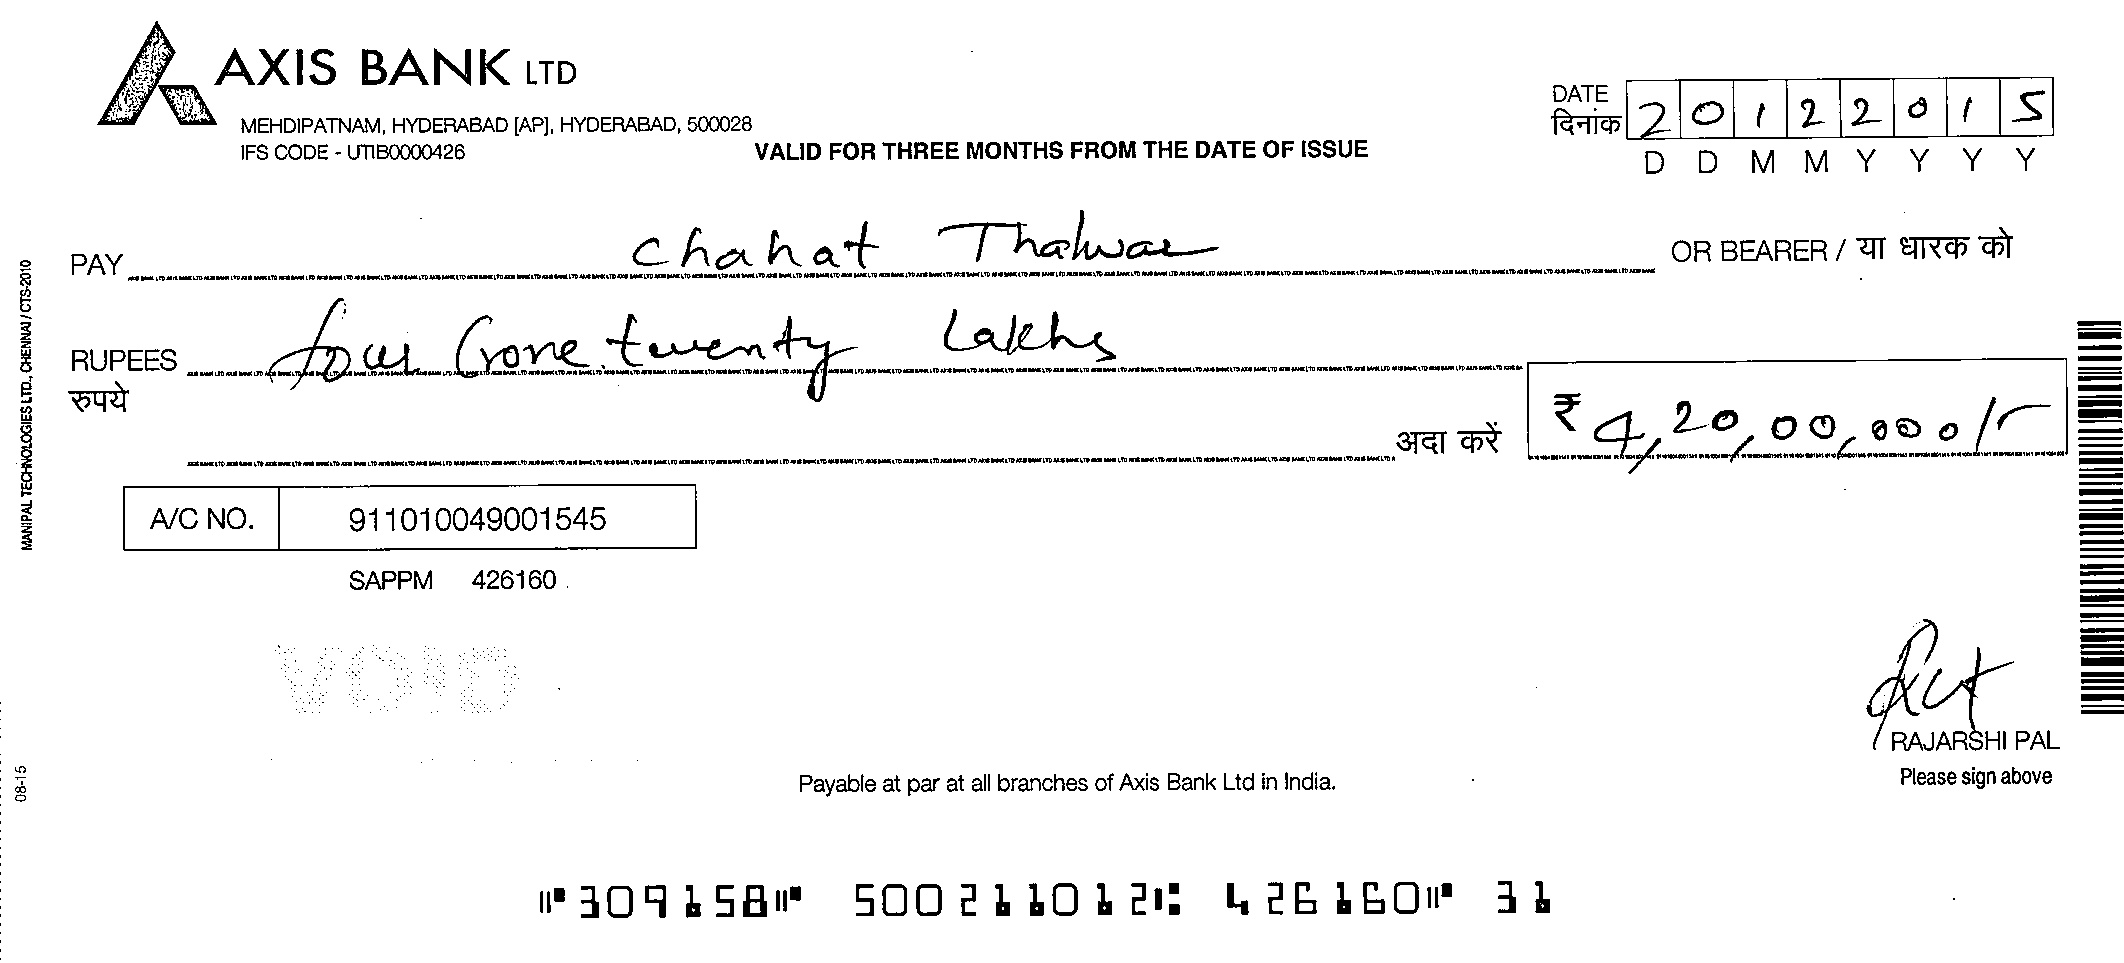 AXIS BANK LTD
MEHDIPATNAM, HYDERABAD [AP], HYDERABAD, 500028
IFS CODE - UTIB0000426
VALID FOR THREE MONTHS FROM THE DATE OF ISSUE
DATE
दिनांक 2 0 1 2 2 0 1 5
D D M M Y Y Y Y
PAY Chahat Thalwar OR BEARER / या धारक को
RUPEES four Crore twenty Lakhs
रुपये
अदा करें ₹ 4,20,00,000/-
A/C NO. 911010049001545
SAPPM 426160
VOID
RAJARSHI PAL
Please sign above
Payable at par at all branches of Axis Bank Ltd in India.
⑈309158⑈ 500211012⑆ 426160⑈ 31
MANIPAL TECHNOLOGIES LTD., CHENNAI / CTS-2010
08-15